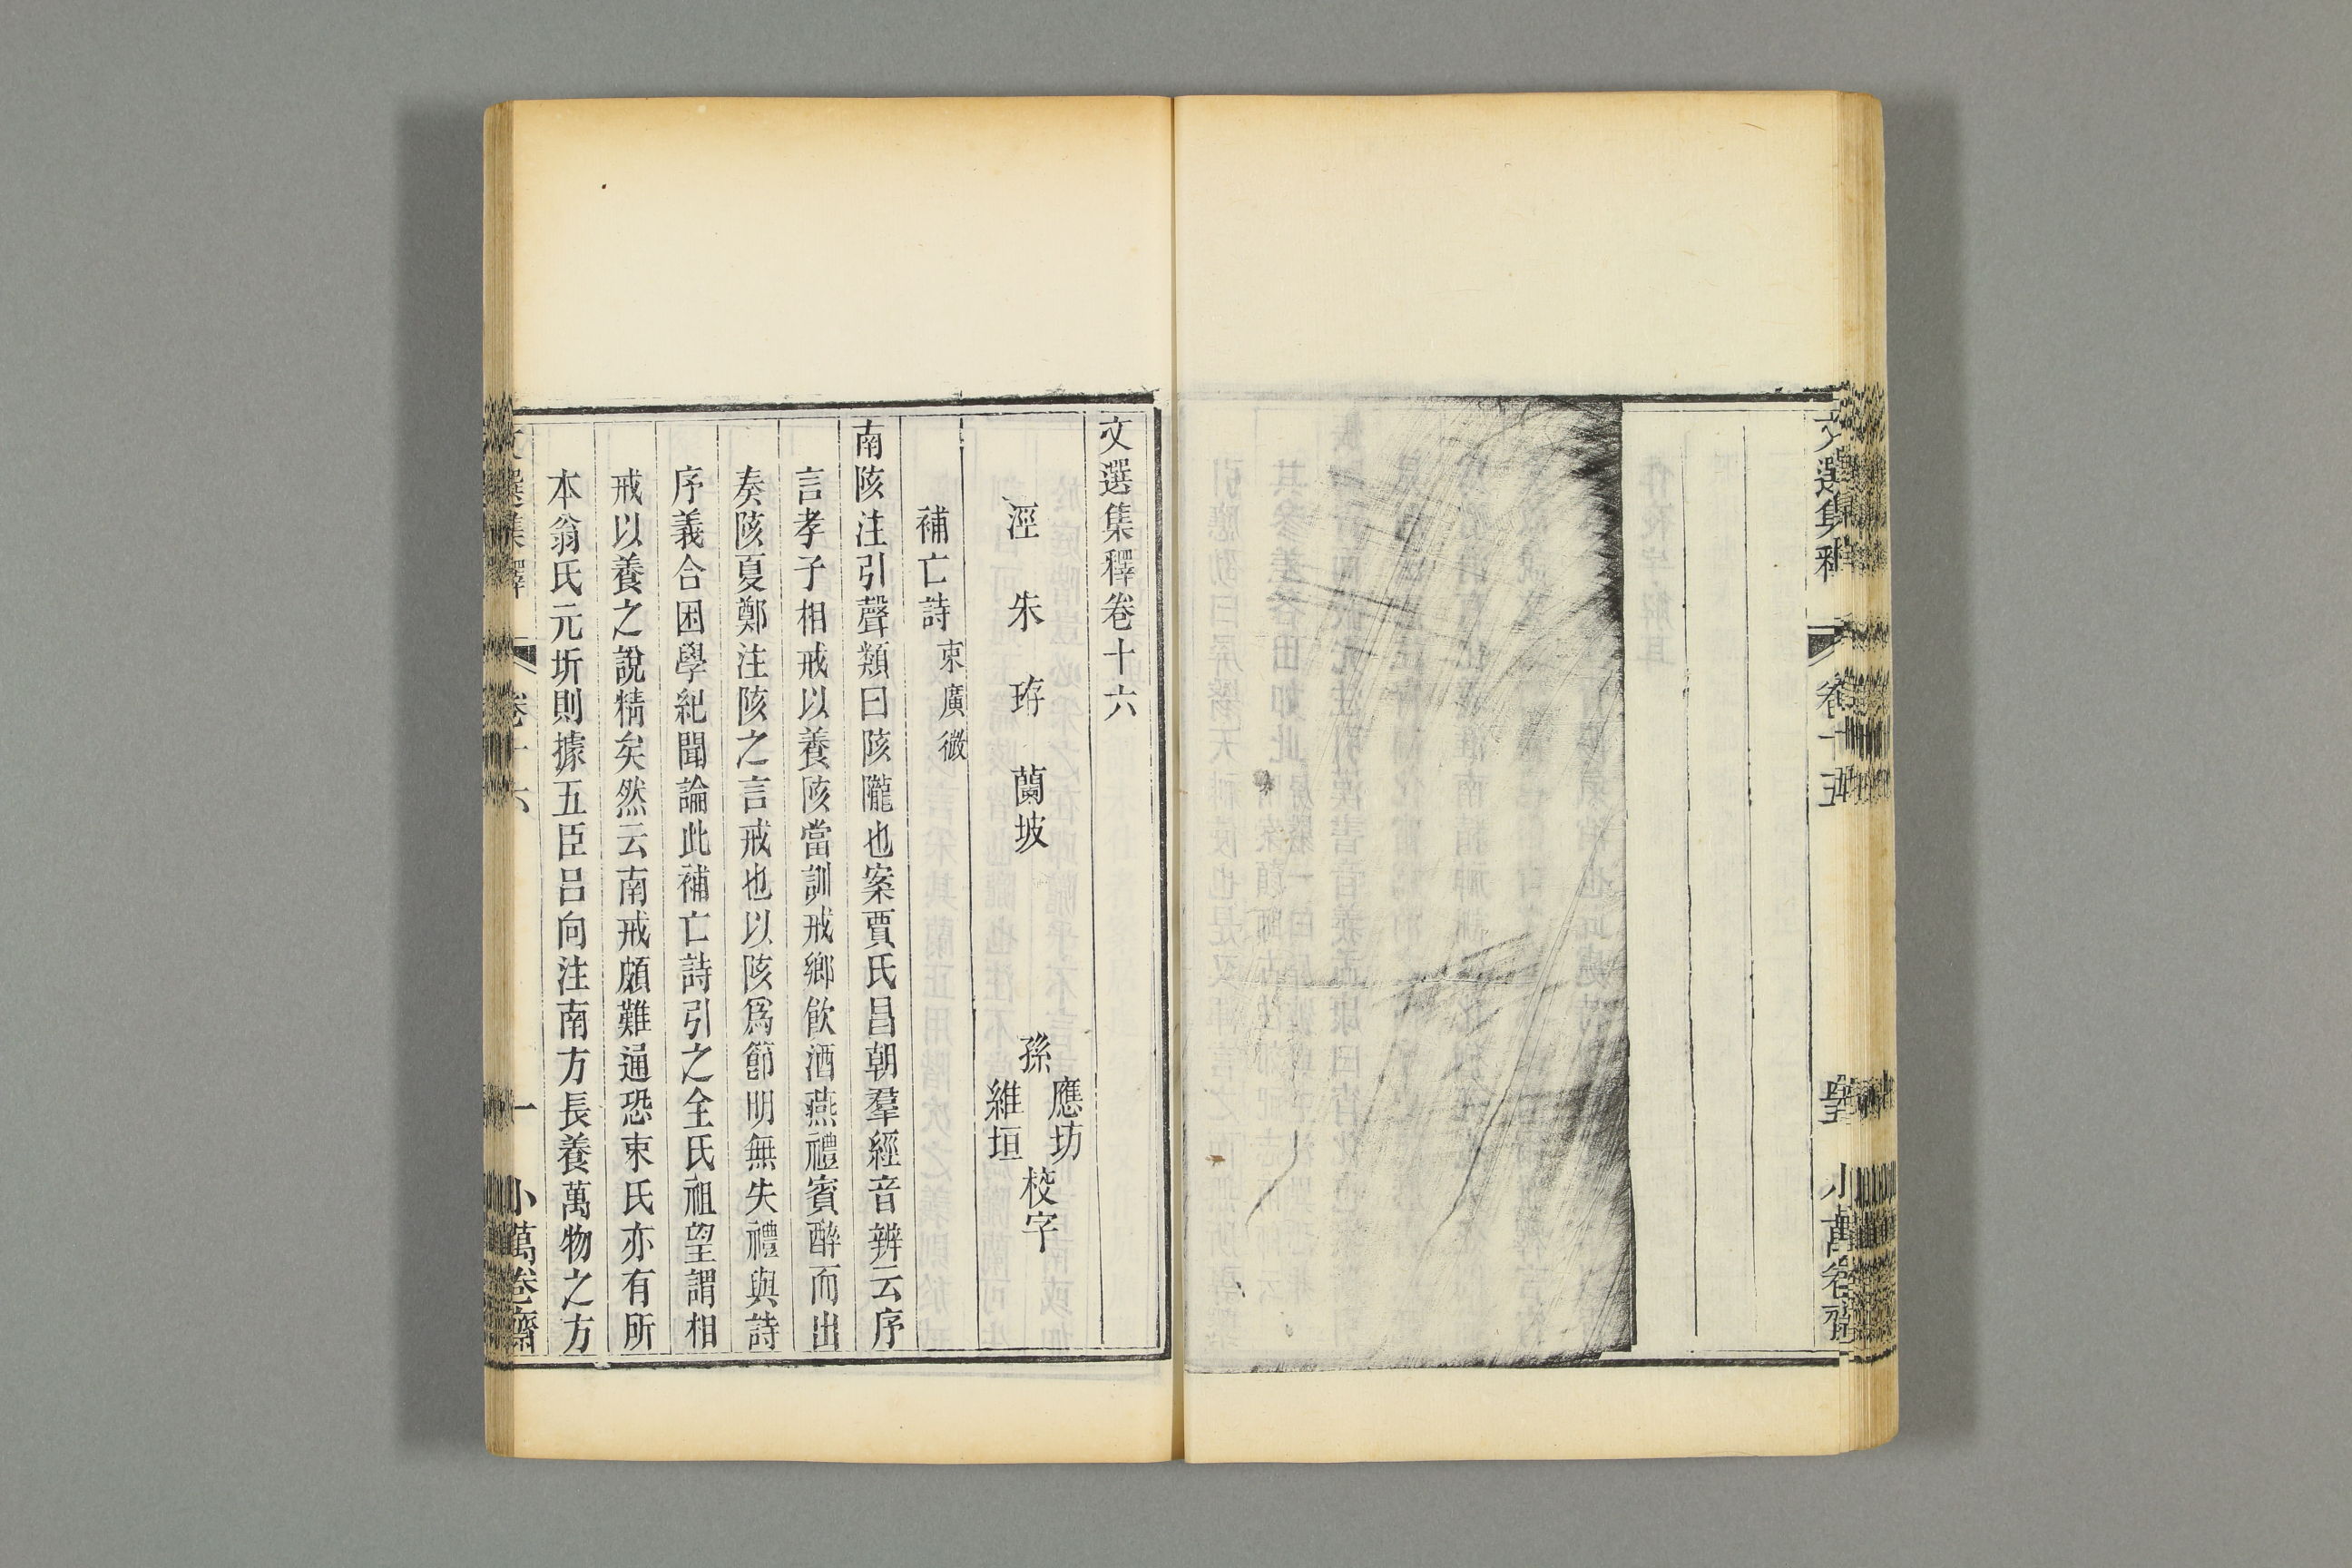 文選集釋
卷十五
小萬卷齋
文選集釋卷十六
涇　朱　珔　蘭坡　孫　應坊　維垣　校字
補亡詩　束廣微
南陔注引聲類曰陔隴也案賈氏昌朝羣經音辨云序
言孝子相戒以養陔當訓戒鄉飲酒燕禮賓醉而出
奏陔夏鄭注陔之言戒也以陔爲節明無失禮與詩
序義合困學紀聞論此補亡詩引之全氏祖望謂相
戒以養之說精矣然云南戒頗難通恐束氏亦有所
本翁氏元圻則據五臣呂向注南方長養萬物之方
文選集釋　卷十六　一　小萬卷齋